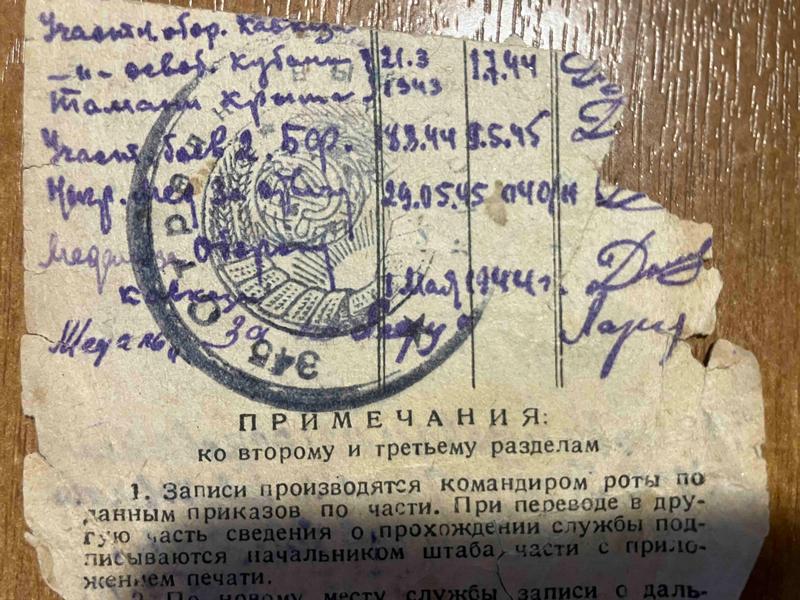 Участн. обор. Кавказа
—"— освоб. Кубани 21.3 1.7.44
Тамани Крыма 1943
Участ. боев 2. Бф. 8.3.44 9.5.45
Нагр. мед за 29.05.45
Медаль Оборону
Кавказа 1 Мая 1944 г.
Медаль За
345 СТР
ПРИМЕЧАНИЯ:
ко второму и третьему разделам
1. Записи производятся командиром роты по
данным приказов по части. При переводе в дру-
гую часть сведения о прохождении службы под-
писываются начальником штаба части с прило-
жением печати.
2. По новому месту службы записи о даль-